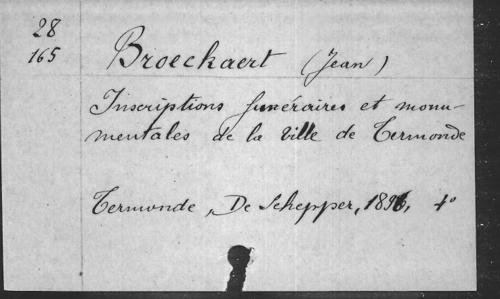 28
165
Broeckaert (Jean)
Inscriptions funéraires et monu-
mentales de la ville de Termonde
Termonde, De Schepper, 1896, 4°